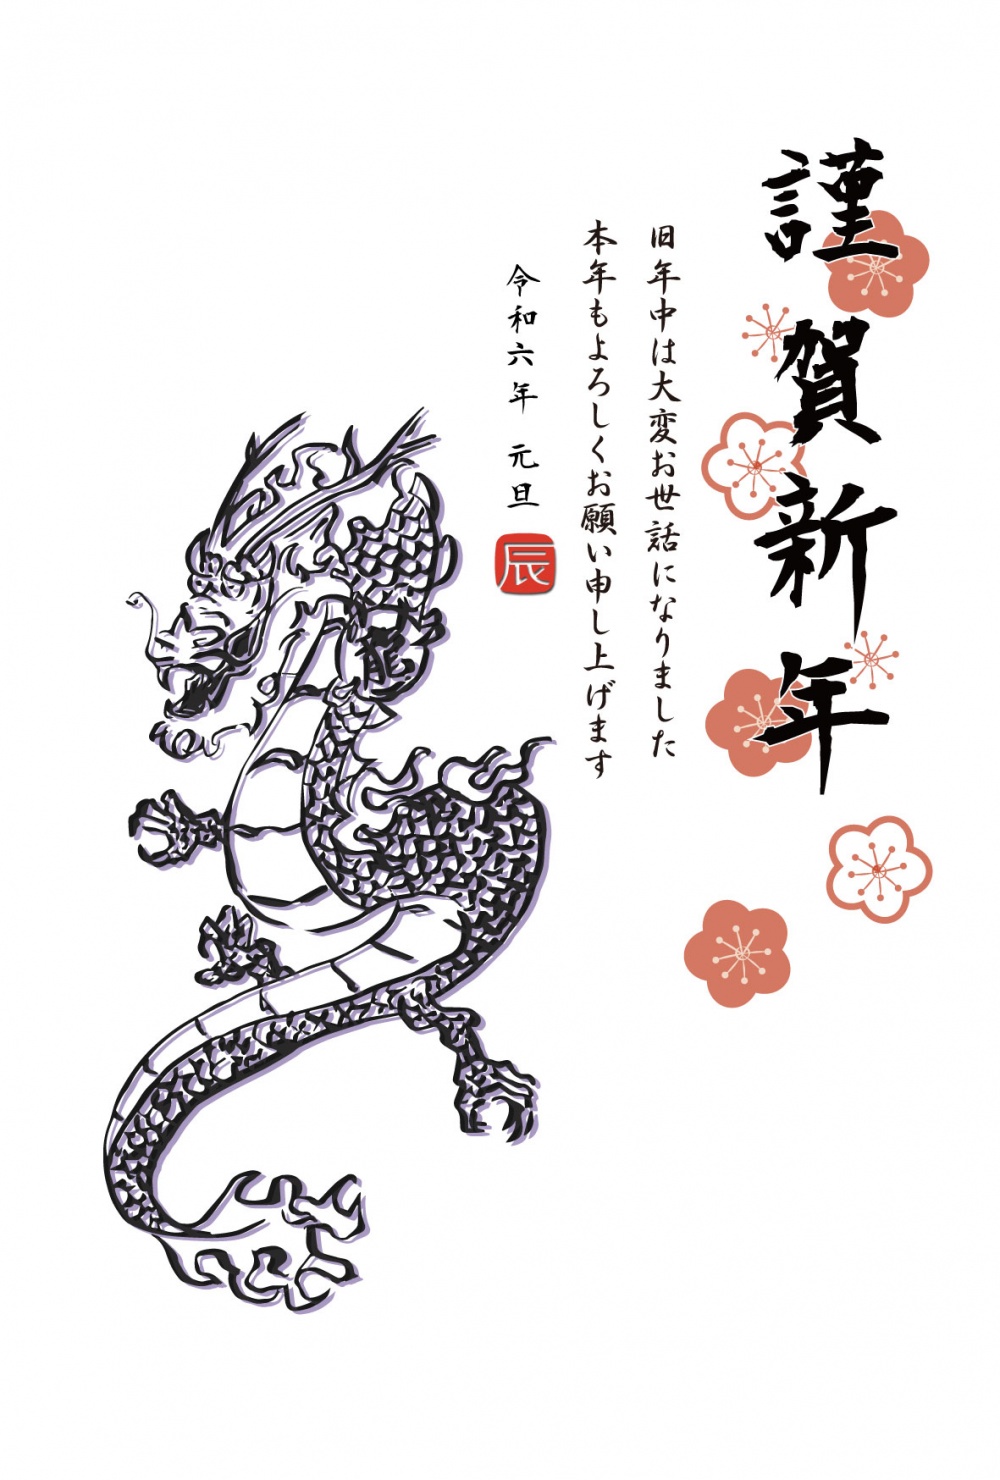 謹賀新年
旧年中は大変お世話になりました
本年もよろしくお願い申し上げます
令和六年 元旦
辰
龍